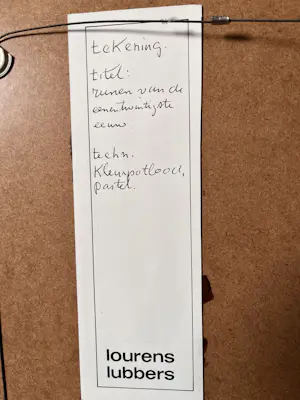 tekening.
titel:
runen van de
eenentwintigste
eeuw
techn.
Kleurpotlood,
pastel.
lourens
lubbers